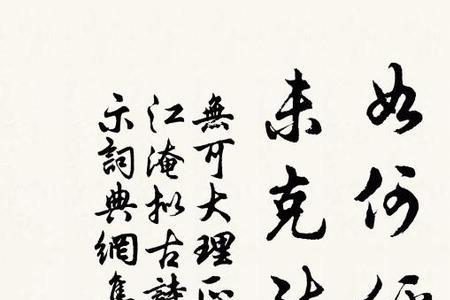 如何
未克
無可大理
江淹拟古
示詞典網